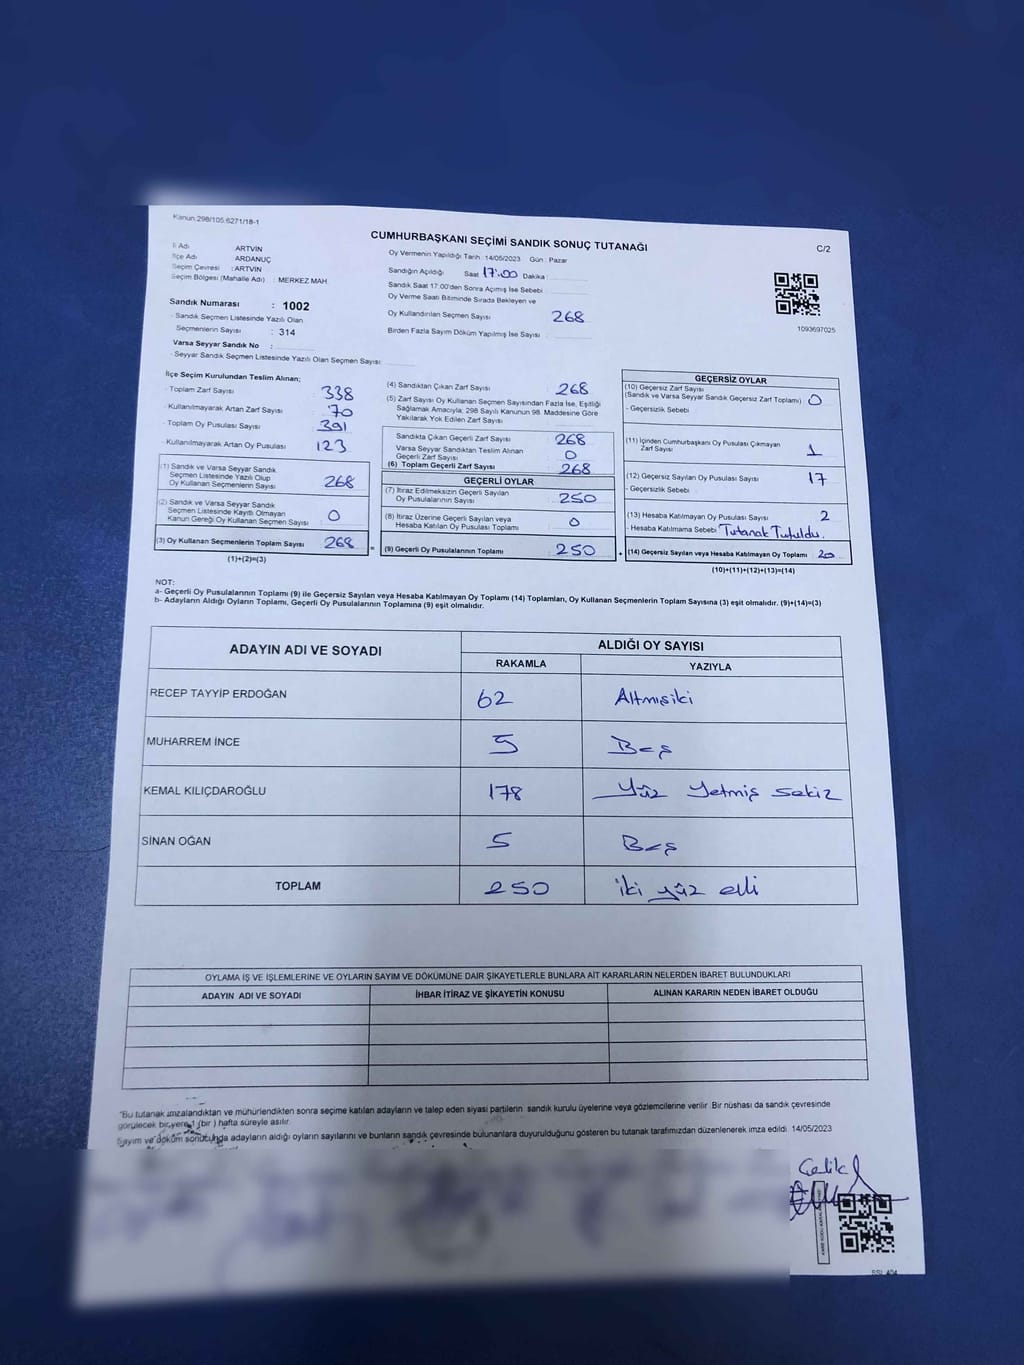 Kanun:298/105,6271/18-1
CUMHURBAŞKANI SEÇİMİ SANDIK SONUÇ TUTANAĞI
C/2
İl Adı ARTVİN
İlçe Adı ARDANUÇ
Seçim Çevresi : ARTVİN
Seçim Bölgesi (Mahalle Adı) : MERKEZ MAH
Sandık Numarası : 1002
- Sandık Seçmen Listesinde Yazılı Olan
Seçmenlerin Sayısı : 314
Varsa Seyyar Sandık No :
- Seyyar Sandık Seçmen Listesinde Yazılı Olan Seçmen Sayısı:
Oy Vermenin Yapıldığı Tarih: 14/05/2023 Gün : Pazar
Sandığın Açıldığı Saat 17:00 Dakika :
Sandık Saat 17:00'den Sonra Açımış İse Sebebi :
Oy Verme Saati Bitiminde Sırada Bekleyen ve
Oy Kullandırılan Seçmen Sayısı 268
Birden Fazla Sayım Döküm Yapılmış İse Sayısı :
1093697025
İlçe Seçim Kurulundan Teslim Alınan;
- Toplam Zarf Sayısı 338
- Kullanılmayarak Artan Zarf Sayısı 70
- Toplam Oy Pusulası Sayısı 391
- Kullanılmayarak Artan Oy Pusulası 123
(1) Sandık ve Varsa Seyyar Sandık
Seçmen Listesinde Yazılı Olup
Oy Kullanan Seçmenlerin Sayısı 268
(2) Sandık ve Varsa Seyyar Sandık
Seçmen Listesinde Kayıtlı Olmayan
Kanun Gereği Oy Kullanan Seçmen Sayısı 0
(3) Oy Kullanan Seçmenlerin Toplam Sayısı 268
(1)+(2)=(3)
(4) Sandıktan Çıkan Zarf Sayısı 268
(5) Zarf Sayısı Oy Kullanan Seçmen Sayısından Fazla İse, Eşitliği
Sağlamak Amacıyla; 298 Sayılı Kanunun 98. Maddesine Göre
Yakılarak Yok Edilen Zarf Sayısı
Sandıkta Çıkan Geçerli Zarf Sayısı 268
Varsa Seyyar Sandıktan Teslim Alınan
Geçerli Zarf Sayısı 0
(6) Toplam Geçerli Zarf Sayısı 268
GEÇERLİ OYLAR
(7) İtiraz Edilmeksizin Geçerli Sayılan
Oy Pusulalarının Sayısı 250
(8) İtiraz Üzerine Geçerli Sayılan veya
Hesaba Katılan Oy Pusulası Toplamı 0
= (9) Geçerli Oy Pusulalarının Toplamı 250 +
GEÇERSİZ OYLAR
(10) Geçersiz Zarf Sayısı
(Sandık ve Varsa Seyyar Sandık Geçersiz Zarf Toplamı) 0
- Geçersizlik Sebebi :
(11) İçinden Cumhurbaşkanı Oy Pusulası Çıkmayan
Zarf Sayısı 1
(12) Geçersiz Sayılan Oy Pusulası Sayısı 17
- Geçersizlik Sebebi :
(13) Hesaba Katılmayan Oy Pusulası Sayısı 2
- Hesaba Katılmama Sebebi : Tutanak Tutuldu.
(14) Geçersiz Sayılan veya Hesaba Katılmayan Oy Toplamı 20
(10)+(11)+(12)+(13)=(14)
NOT:
a- Geçerli Oy Pusulalarının Toplamı (9) ile Geçersiz Sayılan veya Hesaba Katılmayan Oy Toplamı (14) Toplamları, Oy Kullanan Seçmenlerin Toplam Sayısına (3) eşit olmalıdır. (9)+(14)=(3)
b- Adayların Aldığı Oyların Toplamı, Geçerli Oy Pusulalarının Toplamına (9) eşit olmalıdır.
ADAYIN ADI VE SOYADI ALDIĞI OY SAYISI
RAKAMLA YAZIYLA
RECEP TAYYİP ERDOĞAN 62 Altmışiki
MUHARREM İNCE 5 Beş
KEMAL KILIÇDAROĞLU 178 Yüz Yetmiş sekiz
SİNAN OĞAN 5 Beş
TOPLAM 250 iki yüz elli
OYLAMA İŞ VE İŞLEMLERİNE VE OYLARIN SAYIM VE DÖKÜMÜNE DAİR ŞİKAYETLERLE BUNLARA AİT KARARLARIN NELERDEN İBARET BULUNDUKLARI
ADAYIN ADI VE SOYADI İHBAR İTİRAZ VE ŞİKAYETİN KONUSU ALINAN KARARIN NEDEN İBARET OLDUĞU
"Bu tutanak imzalandıktan ve mühürlendikten sonra seçime katılan adayların ve talep eden siyasi partilerin sandık kurulu üyelerine veya gözlemcilerine verilir. Bir nüshası da sandık çevresinde
görülecek bir yere 1 (bir ) hafta süreyle asılır.
Sayım ve döküm sonucunda adayların aldığı oyların sayılarını ve bunların sandık çevresinde bulunanlara duyurulduğunu gösteren bu tutanak tarafımızdan düzenlenerek imza edildi. 14/05/2023
Çelik